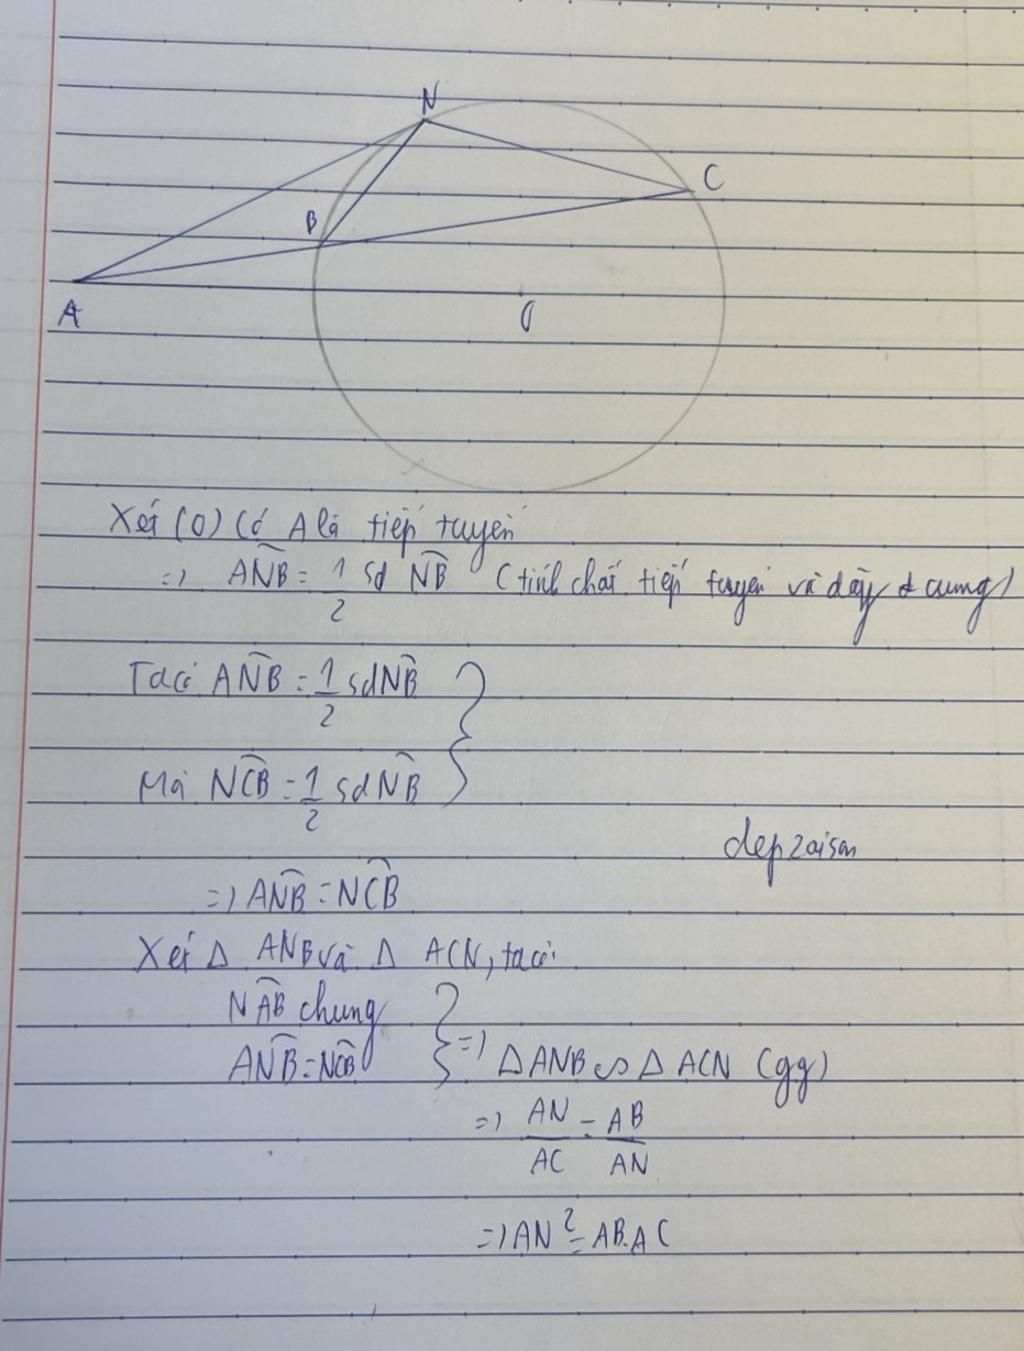 N
C
B
A
O
Xét (O) Có A là tiếp tuyến
=) AN̂B = 1/2 sđ NB̂ (tính chất tiếp tuyến và dây & cung)
Ta có AN̂B = 1/2 sđ NB̂
Mà NĈB = 1/2 sđ NB̂
depzaisan
=) AN̂B = NĈB
Xét Δ ANB và Δ ACN, ta có:
NÂB chung
AN̂B = NĈB } =) Δ ANB ∽ Δ ACN (gg)
=) AN/AC = AB/AN
=) AN² = AB.AC